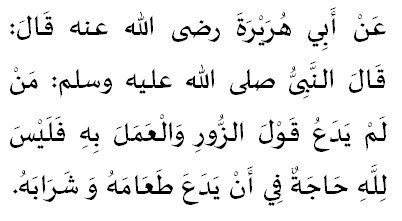 عَنْ أَبِي هُرَيْرَةَ رضى الله عنه قَالَ:
قَالَ النَّبِىُّ صلى الله عليه وسلم: مَنْ
لَمْ يَدَعُ قَوْلَ الزُّورِ وَالْعَمَلَ بِهِ فَلَيْسَ
لِلَّهِ حَاجَةٌ فِي أَنْ يَدَعَ طَعَامَهُ وَ شَرَابَهُ.